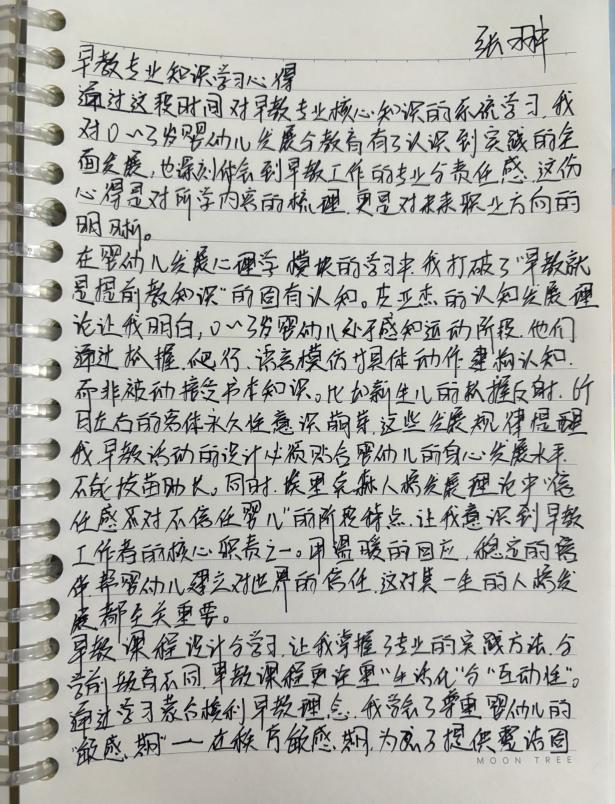 张翀
早教专业知识学习心得
通过这段时间对早教专业核心知识的系统学习,我
对0~3岁婴幼儿发展与教育有了认识到实践的全
面发展,也深刻体会到早教工作的专业与责任感,这份
心得是对所学内容的梳理,更是对未来职业方向的
明晰。
在婴幼儿发展心理学模块的学习中,我打破了"早教就
是提前教知识"的固有认知。皮亚杰的认知发展理
论让我明白,0~3岁婴幼儿处于感知运动阶段,他们
通过抓握、爬行、语言模仿等具体动作建构认知,
而非被动接受书本知识。比如新生儿的抓握反射,8个
月左右的客体永久性意识萌芽,这些发展规律提醒
我,早教活动的设计必须贴合婴幼儿的身心发展水平,
不能拔苗助长。同时,埃里克森人格发展理论中"信
任感不对不信任婴儿"的阶段特点,让我意识到早教
工作者的核心职责之一。用温暖的回应,稳定的陪
伴帮婴幼儿建立对世界的信任,这对其一生的人格发
展都至关重要。
早教课程设计与学习,让我掌握了专业的实践方法,与
学前教育不同,早教课程更注重"生活化"与"互动性"。
通过学习蒙台梭利早教理念,我学会了尊重婴幼儿的
"敏感期"一在秩序敏感期,为孩子提供整洁固
MOON TREE